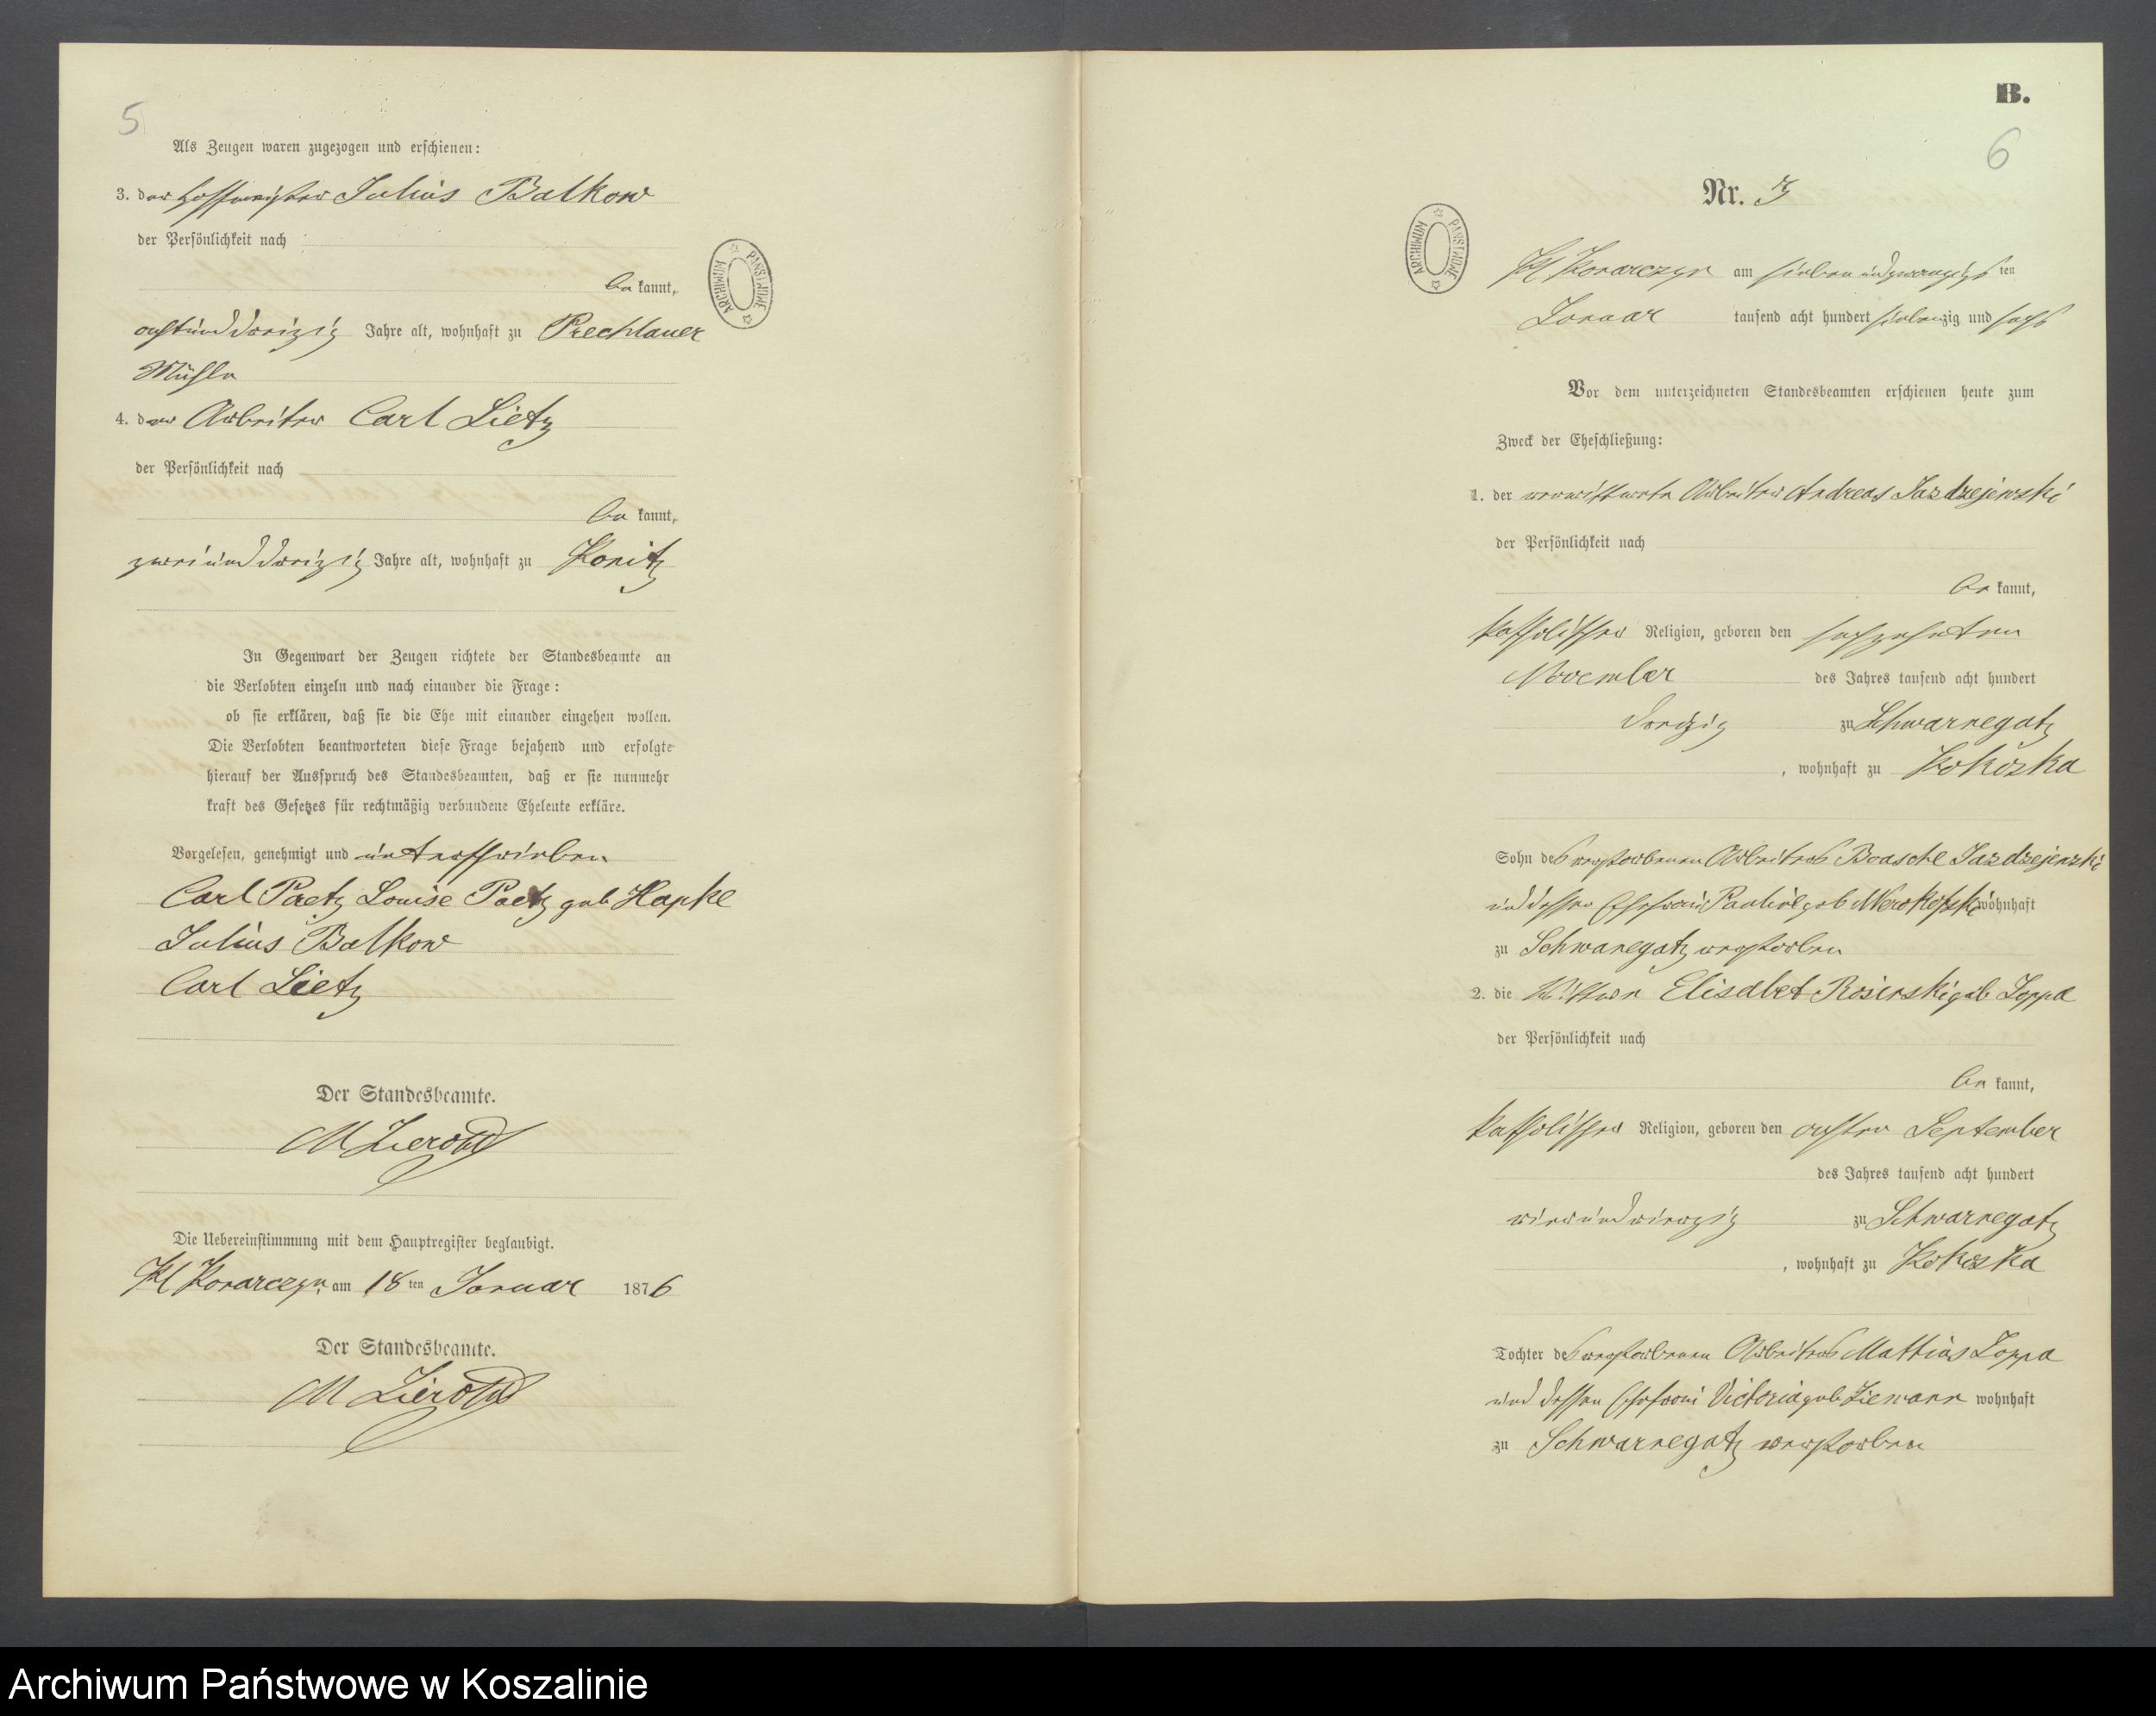 5
Als Zeugen waren zugezogen und erschienen:
3. der Hofmeister Julius Balkow
der Persönlichkeit nach
be kannt,
achtunddreizig Jahre alt, wohnhaft zu Prechlauer
Mühle
4. der Arbeiter Carl Lietz
der Persönlichkeit nach
be kannt,
zweiunddreizig Jahre alt, wohnhaft zu Konitz
In Gegenwart der Zeugen richtete der Standesbeamte an
die Verlobten einzeln und nach einander die Frage:
ob sie erklären, daß sie die Ehe mit einander eingehen wollen.
Die Verlobten beantworteten diese Frage bejahend und erfolgte
hierauf der Ausspruch des Standesbeamten, daß er sie nunmehr
kraft des Gesetzes für rechtmäßig verbundene Eheleute erkläre.
Vorgelesen, genehmigt und unterschrieben
Carl Paetz Louise Paetz geb Hapke
Julius Balkow
Carl Lietz
Der Standesbeamte.
M Zierold
Die Uebereinstimmung mit dem Hauptregister beglaubigt.
Kl Konarczyn, am 18 ten Januar 1876
Der Standesbeamte.
M Zierold
ARCHIWUM PAŃSTWOWE
B.
6
Nr. 3
ARCHIWUM PAŃSTWOWE
Kl Konarczyn am siebenundzwanzigs ten
Januar tausend acht hundert siebenzig und sechs
Vor dem unterzeichneten Standesbeamten erschienen heute zum
Zweck der Eheschließung:
1. der verwittwete Arbeiter Andreas Jazdzejewski
der Persönlichkeit nach
be kannt,
katholischer Religion, geboren den sechzehnten
November des Jahres tausend acht hundert
dreizig zu Schwarnegatz
, wohnhaft zu Kokoska
Sohn des verstorbenen Arbeiters Jazdzejewski
und dessen Ehefrau geb wohnhaft
zu Schwanegatz verstorben
2. die Wittwe Elisabet Rosinski geb Zoppa
der Persönlichkeit nach
be kannt,
katholischer Religion, geboren den achten September
des Jahres tausend acht hundert
vierundvierzig zu Schwarnegatz
, wohnhaft zu Kokoska
Tochter des verstorbenen Arbeiters Mattias Zoppa
und dessen Ehefrau Victoria geb Ziemann wohnhaft
zu Schwarnegatz verstorben
Archiwum Państwowe w Koszalinie